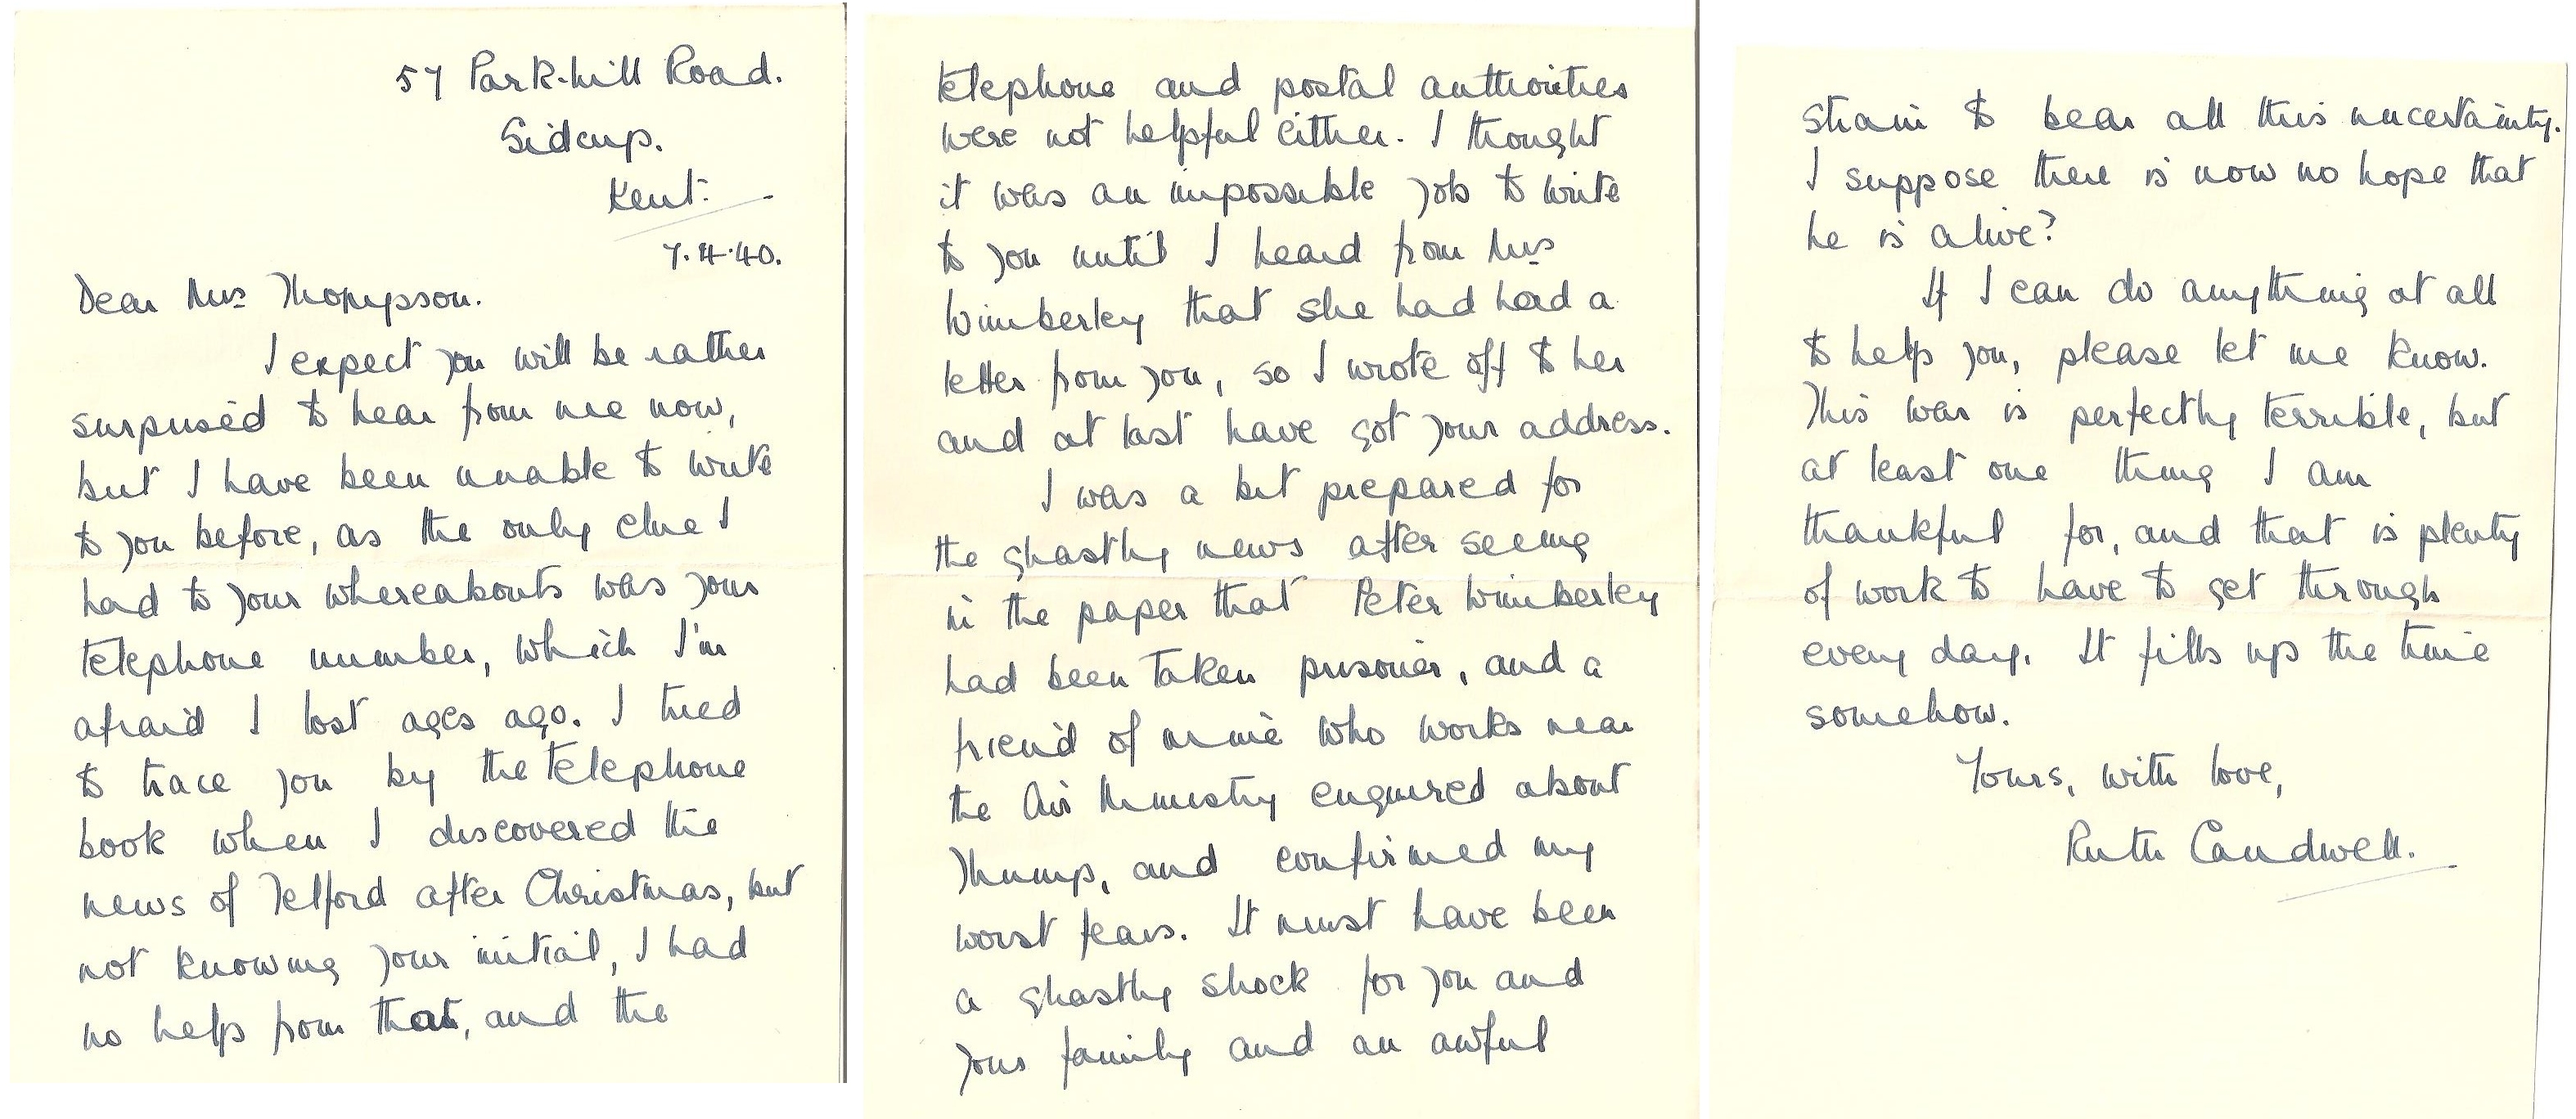 57 Park-hill Road.
Sidcup.
Kent.
7.4.40.
Dear Mrs Thompson.
I expect you will be rather
surprised to hear from me now,
but I have been unable to write
to you before, as the only clue I
had to your whereabouts was your
telephone number, which I'm
afraid I lost ages ago. I tried
to trace you by the telephone
book when I discovered the
news of Telford after Christmas, but
not knowing your initial, I had
no help from that, and the
telephone and postal authorities
were not helpful either. I thought
it was an impossible job to write
to you until I heard from Mrs
Wimberley that she had had a
letter from you, so I wrote off to her
and at last have got your address.
I was a bit prepared for
the ghastly news after seeing
in the paper that Peter Wimberley
had been taken prisoner, and a
friend of mine who works near
the Air Ministry enquired about
Thump, and confirmed my
worst fears. It must have been
a ghastly shock for you and
your family and an awful
strain to bear all this uncertainty.
I suppose there is now no hope that
he is alive?
If I can do anything at all
to help you, please let me know.
This war is perfectly terrible, but
at least one thing I am
thankful for, and that is plenty
of work to have to get through
every day. It fills up the time
somehow.
Yours, with love,
Ruth Caudwell.